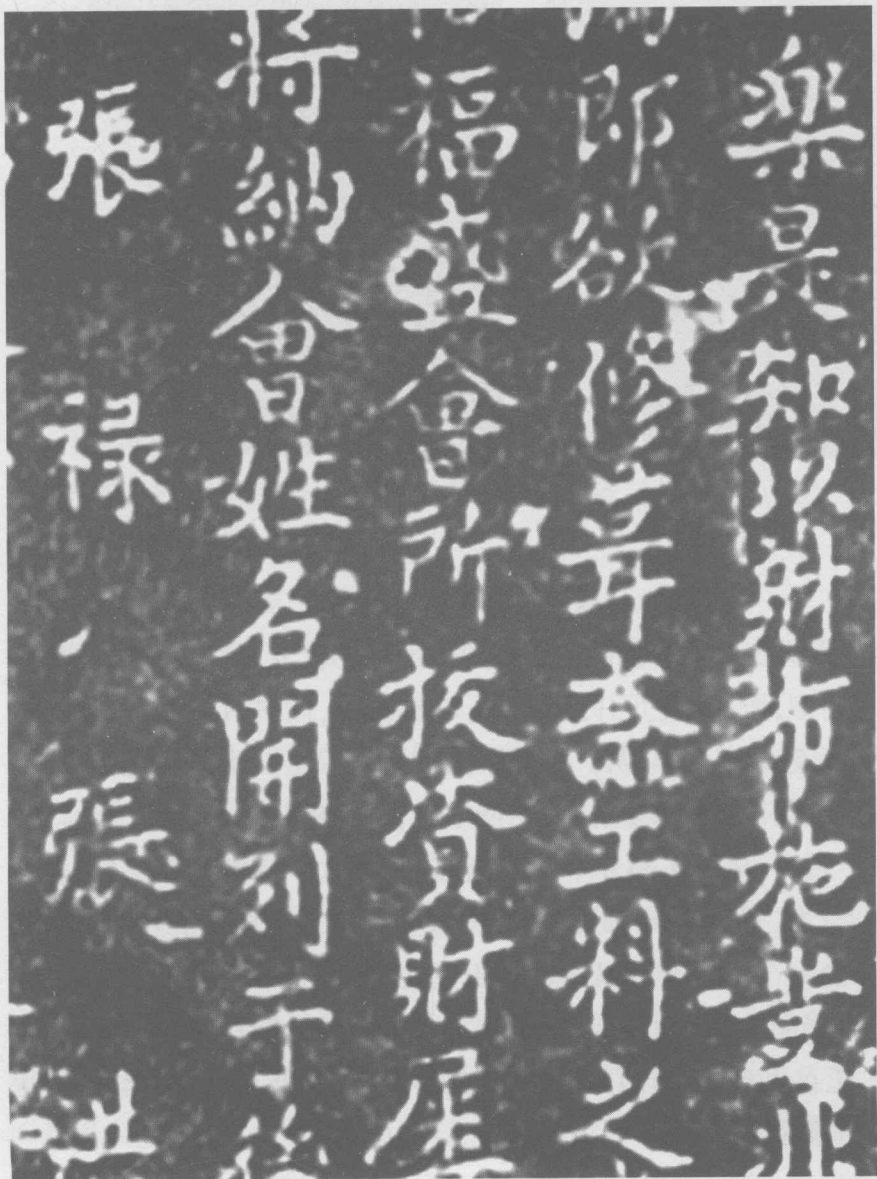 樂是知以財布施豈非
即欲修葺奈工料之
福盛會所捄資財屢
將納會姓名開列于後
張祿張